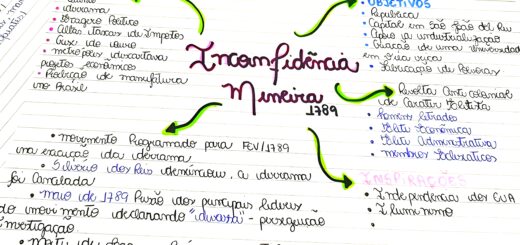 derrama
• Bloqueio Político
• Altas Taxas de Impostos
• Crise do ouro
• metrópoles descartava
projetos econômicos
• Proibição de manufatura
no Brasil
Inconfidência
Mineira
1789
• OBJETIVOS
• República
• Capital em São João del Rei
• Apoio à industrialização
• Criação de uma universidade
em Vila rica
• Fabricação de Pólvoras
Revolta Anti colonial
de Caráter Elitista
• homens letrados
• Elite Econômica
• Elite Administrativa
• membros Eclesiásticos
INSPIRAÇÕES
• Independência dos EUA
• Iluminismo
• movimento Programado para FEV/1789
na execução da derrama
• Silvério dos Reis denunciou, a derrama
foi Cancelada
• maio de 1789 Prisão dos principais líderes
do movimento declarando "devassa" - perseguição
Investigação